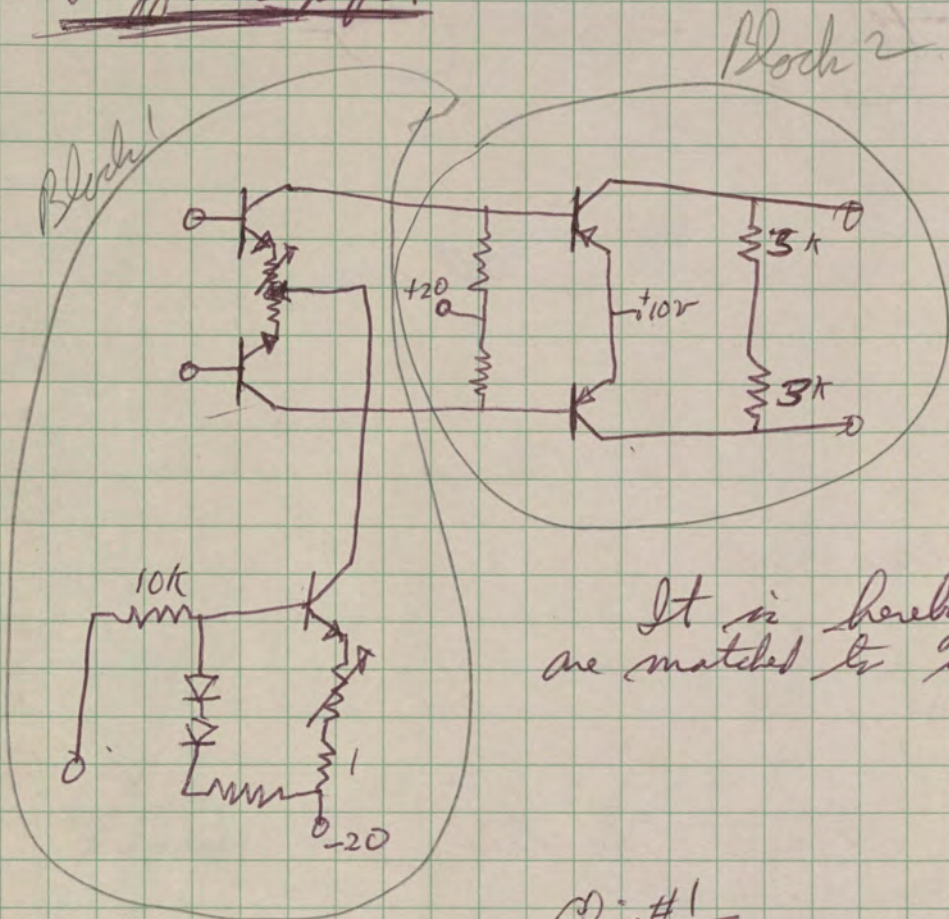 Block 2
Block 1
+20
+10v
3K
3K
10K
1
-20
It is
are matched to
#1